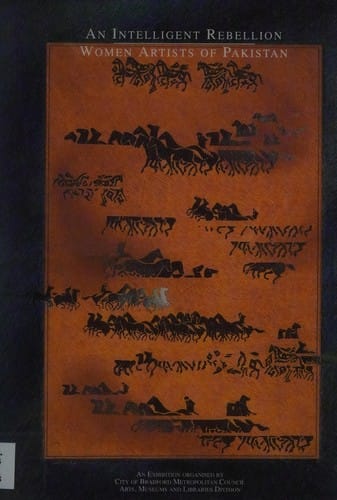 AN INTELLIGENT REBELLION
WOMEN ARTISTS OF PAKISTAN
AN EXHIBITION ORGANISED BY
CITY OF BRADFORD METROPOLITAN COUNCIL
ARTS, MUSEUMS AND LIBRARIES DIVISION